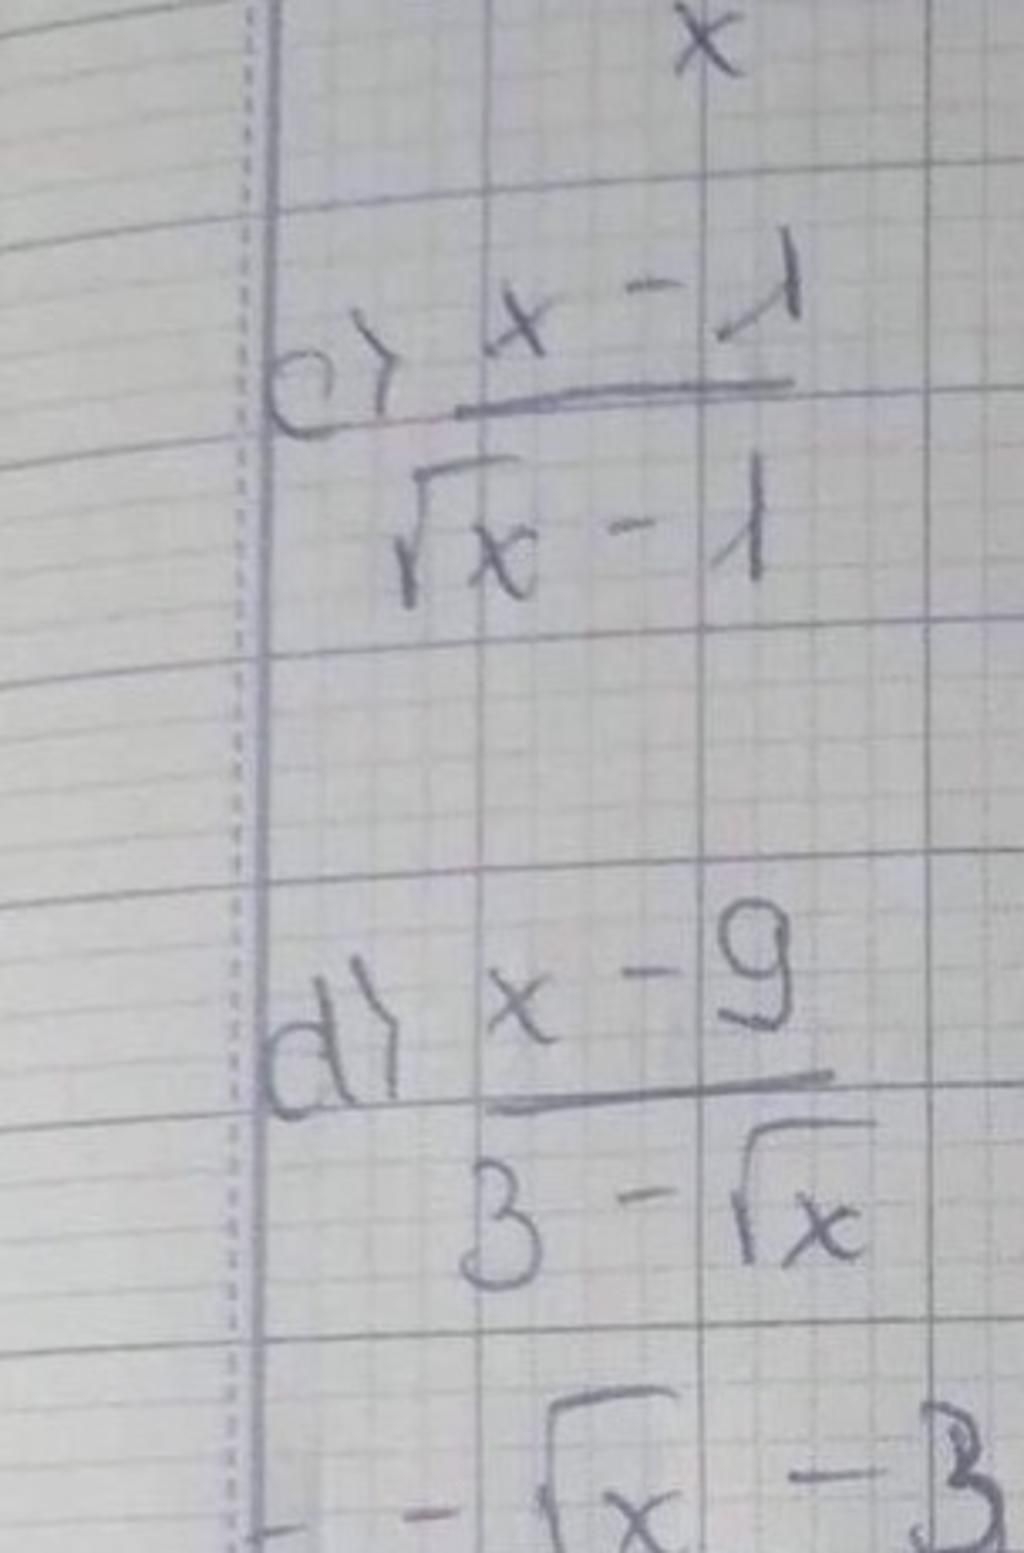 x
c) x - 1
√x - 1
d) x - 9
3 - √x
- - √x - 3